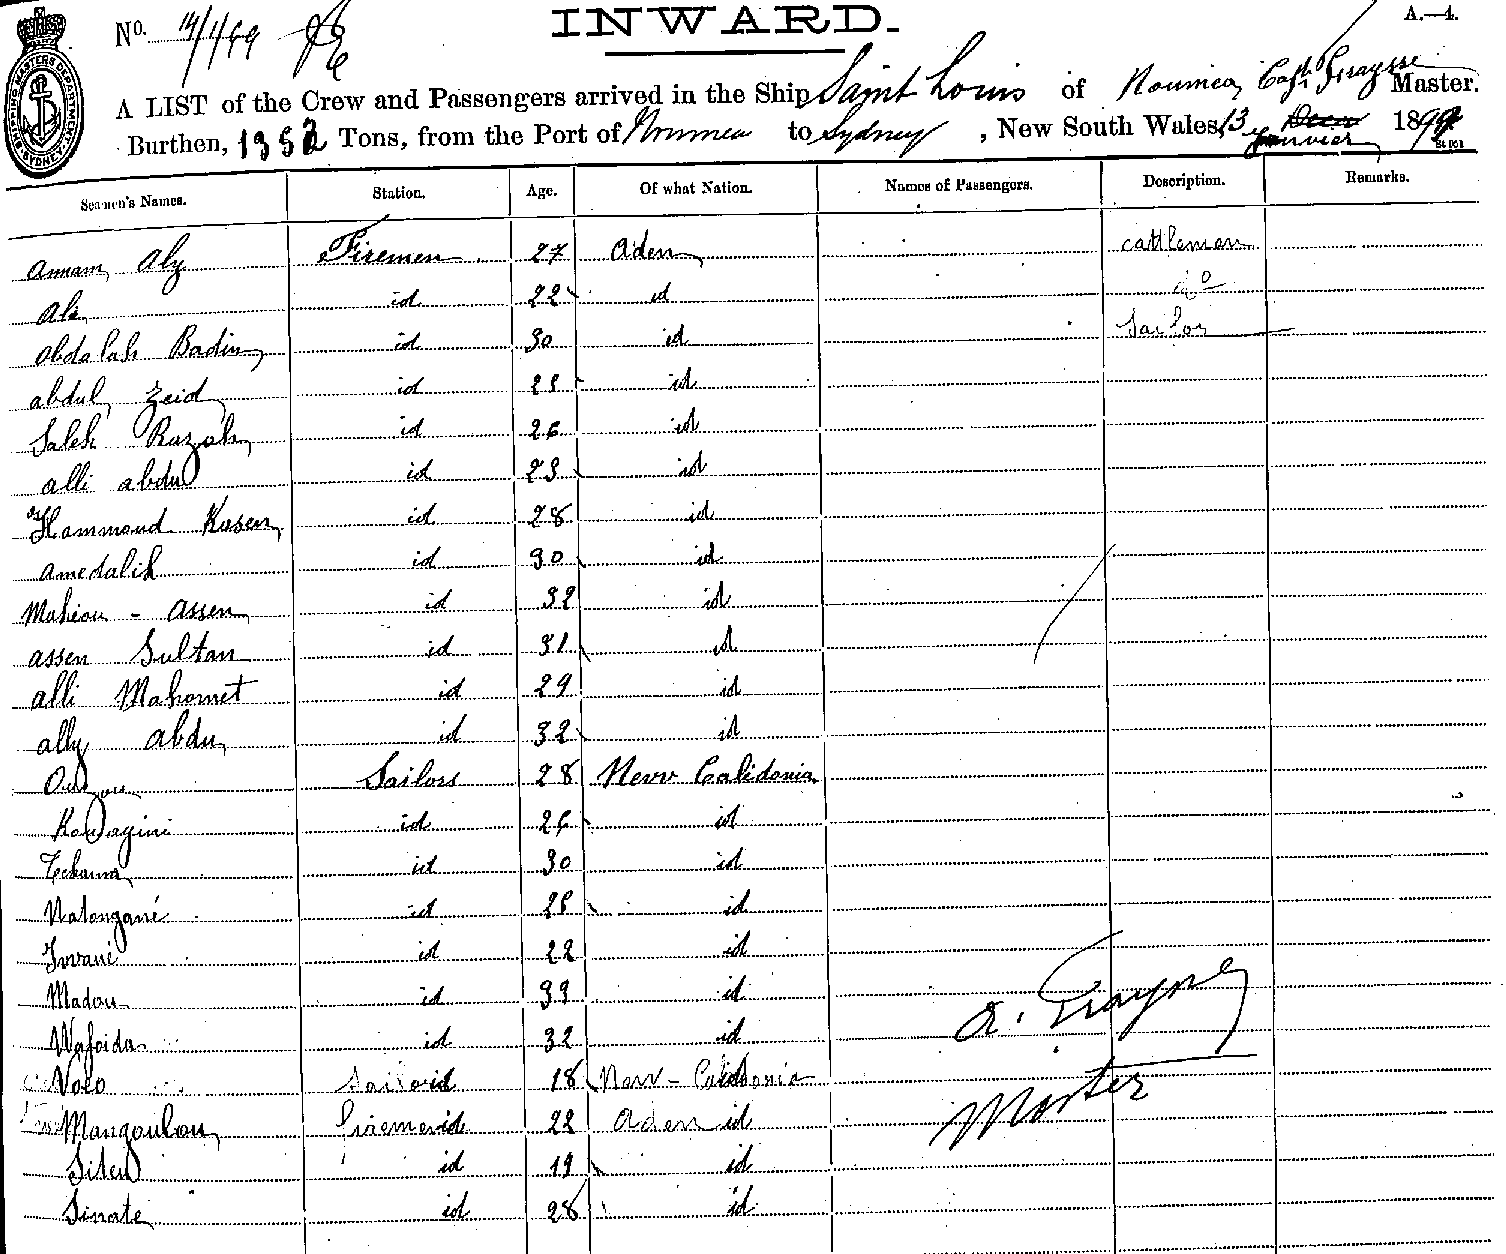 No. 14/1/99
INWARD.
A.—4.
SHIPPING MASTERS DEPARTMENT SYDNEY
A LIST of the Crew and Passengers arrived in the Ship Saint Louis of Noumea, Capt Graysse Master.
Burthen, 1352 Tons, from the Port of Noumea to Sydney, New South Wales, 13 Janvier 1899
Seamen's Names. Station. Age. Of what Nation. Names of Passengers. Description. Remarks.
Annam Aly Firemen 27 Aden cattleman
Ali id 22 id do
Abdalah Badin id 30 id Sailor
abdul Zeid id 25 id
Saleh Razah id 26 id
alli abdu id 23 id
Hammoud Kasen id 28 id
amedalih id 30 id
Mahiou - assen id 32 id
assen Sultan id 31 id
alli Mahomet id 29 id
ally abdu id 32 id
Sailors 28 New Calidonia
id 26 id
Tchama id 30 id
Natongané id 28 id
id 22 id
Madou id 33 id
Wafoida id 32 id
A. Graysse
Volo Sailor id 18 New-Caledonia id
Master
Mangoulou firemen id 22 Aden id
Siteu id 19 id
Sinate id 28 id